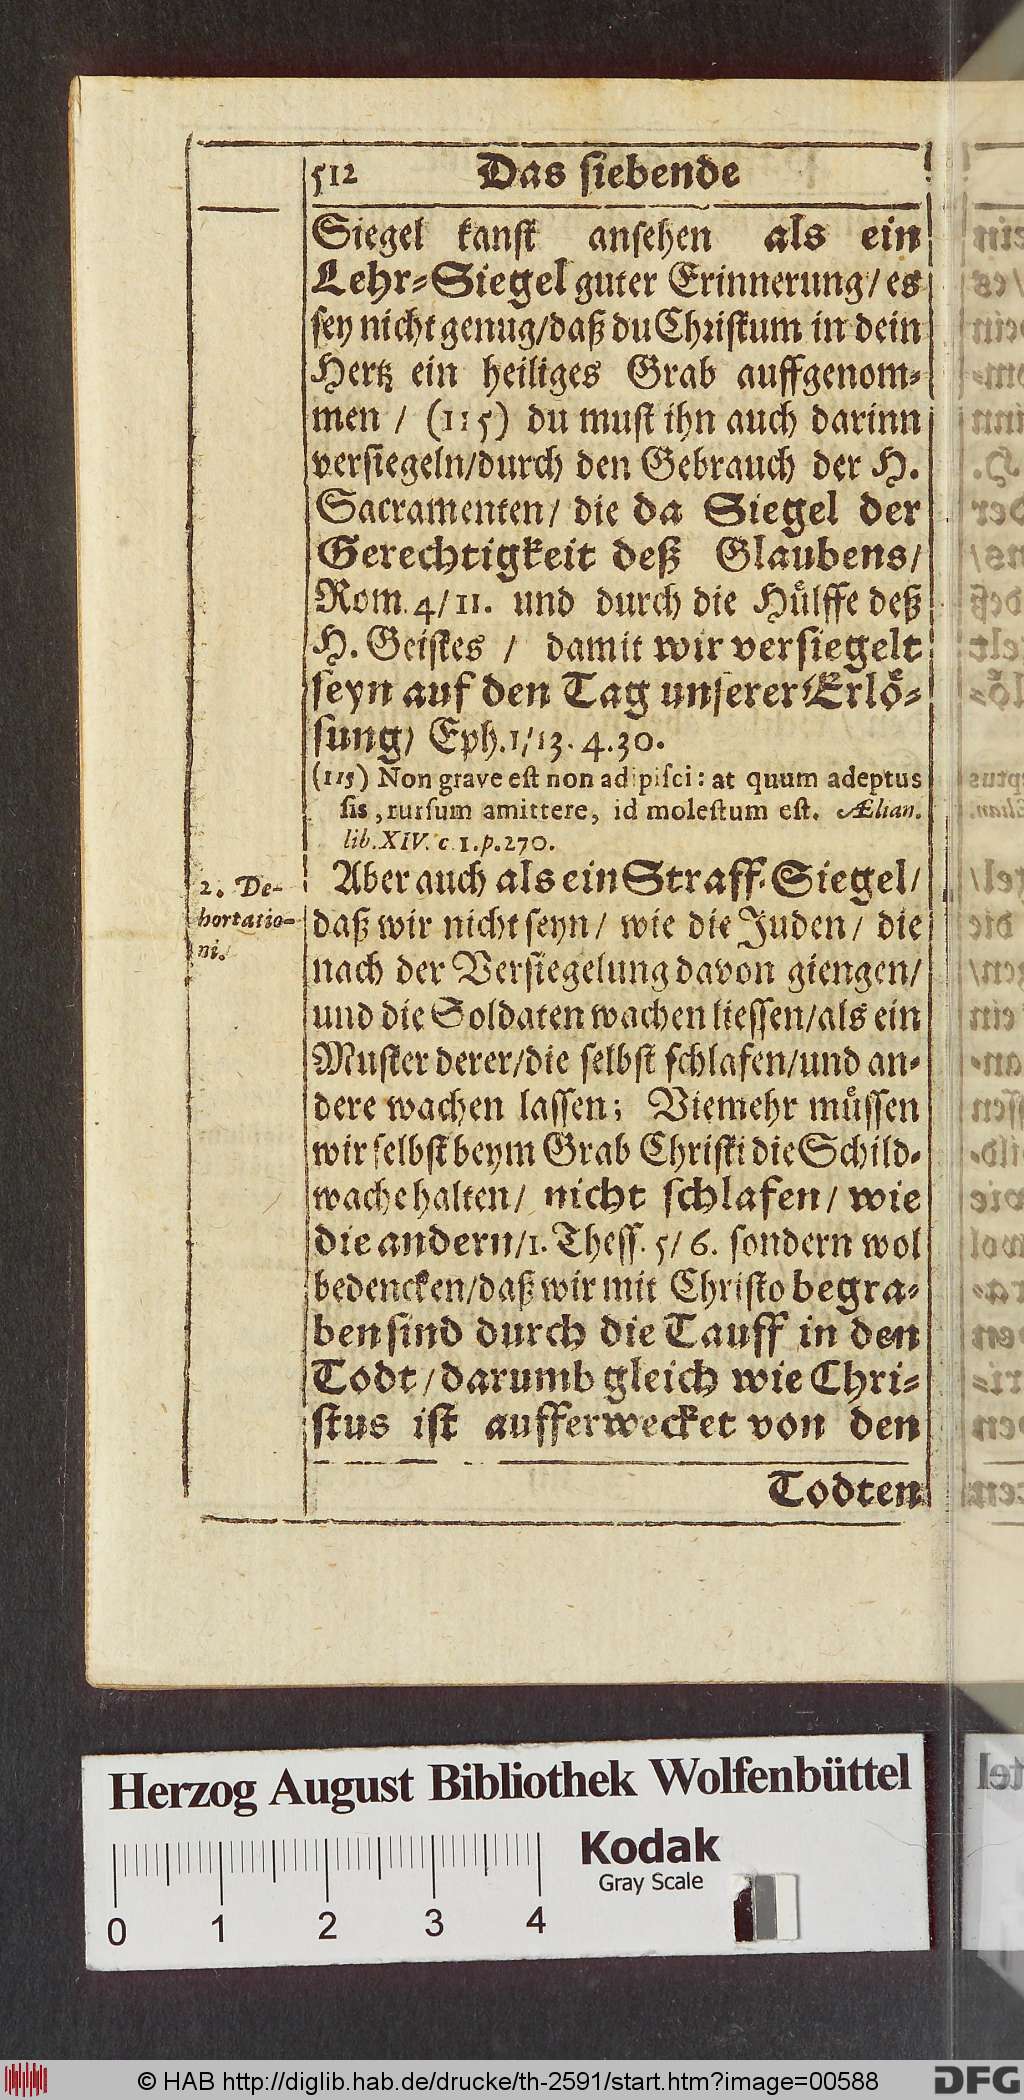 512 Das siebende
Siegel kanst ansehen als ein
Lehr-Siegel guter Erinnerung/ es
sey nicht genug/daß du Christum in dein
Hertz ein heiliges Grab auffgenom-
men / (115) du must ihn auch darinn
versiegeln/durch den Gebrauch der H.
Sacramenten/ die da Siegel der
Gerechtigkeit deß Glaubens/
Rom. 4/11. und durch die Hülffe deß
H. Geistes / damit wir versiegelt
seyn auf den Tag unserer Erlö-
sung/ Eph.1/13. 4.30.
(115) Non grave est non adipisci: at quum adeptus
sis, rursum amittere, id molestum est. Ælian.
lib.XIV. c.1.p.270.
2. De-
hortatio-
ni.
Aber auch als ein Straff-Siegel/
daß wir nicht seyn/ wie die Juden/ die
nach der Versiegelung davon giengen/
und die Soldaten wachen liessen/als ein
Muster derer/die selbst schlafen/und an-
dere wachen lassen; Viemehr müssen
wir selbst beym Grab Christi die Schild-
wache halten/ nicht schlafen/ wie
die andern/1. Thess. 5/ 6. sondern wol
bedencken/daß wir mit Christo begra-
ben sind durch die Tauff in den
Todt/darumb gleich wie Chri-
stus ist aufferwecket von den
Todten
Herzog August Bibliothek Wolfenbüttel
Kodak
Gray Scale
0 1 2 3 4
© HAB http://diglib.hab.de/drucke/th-2591/start.htm?image=00588
DFG